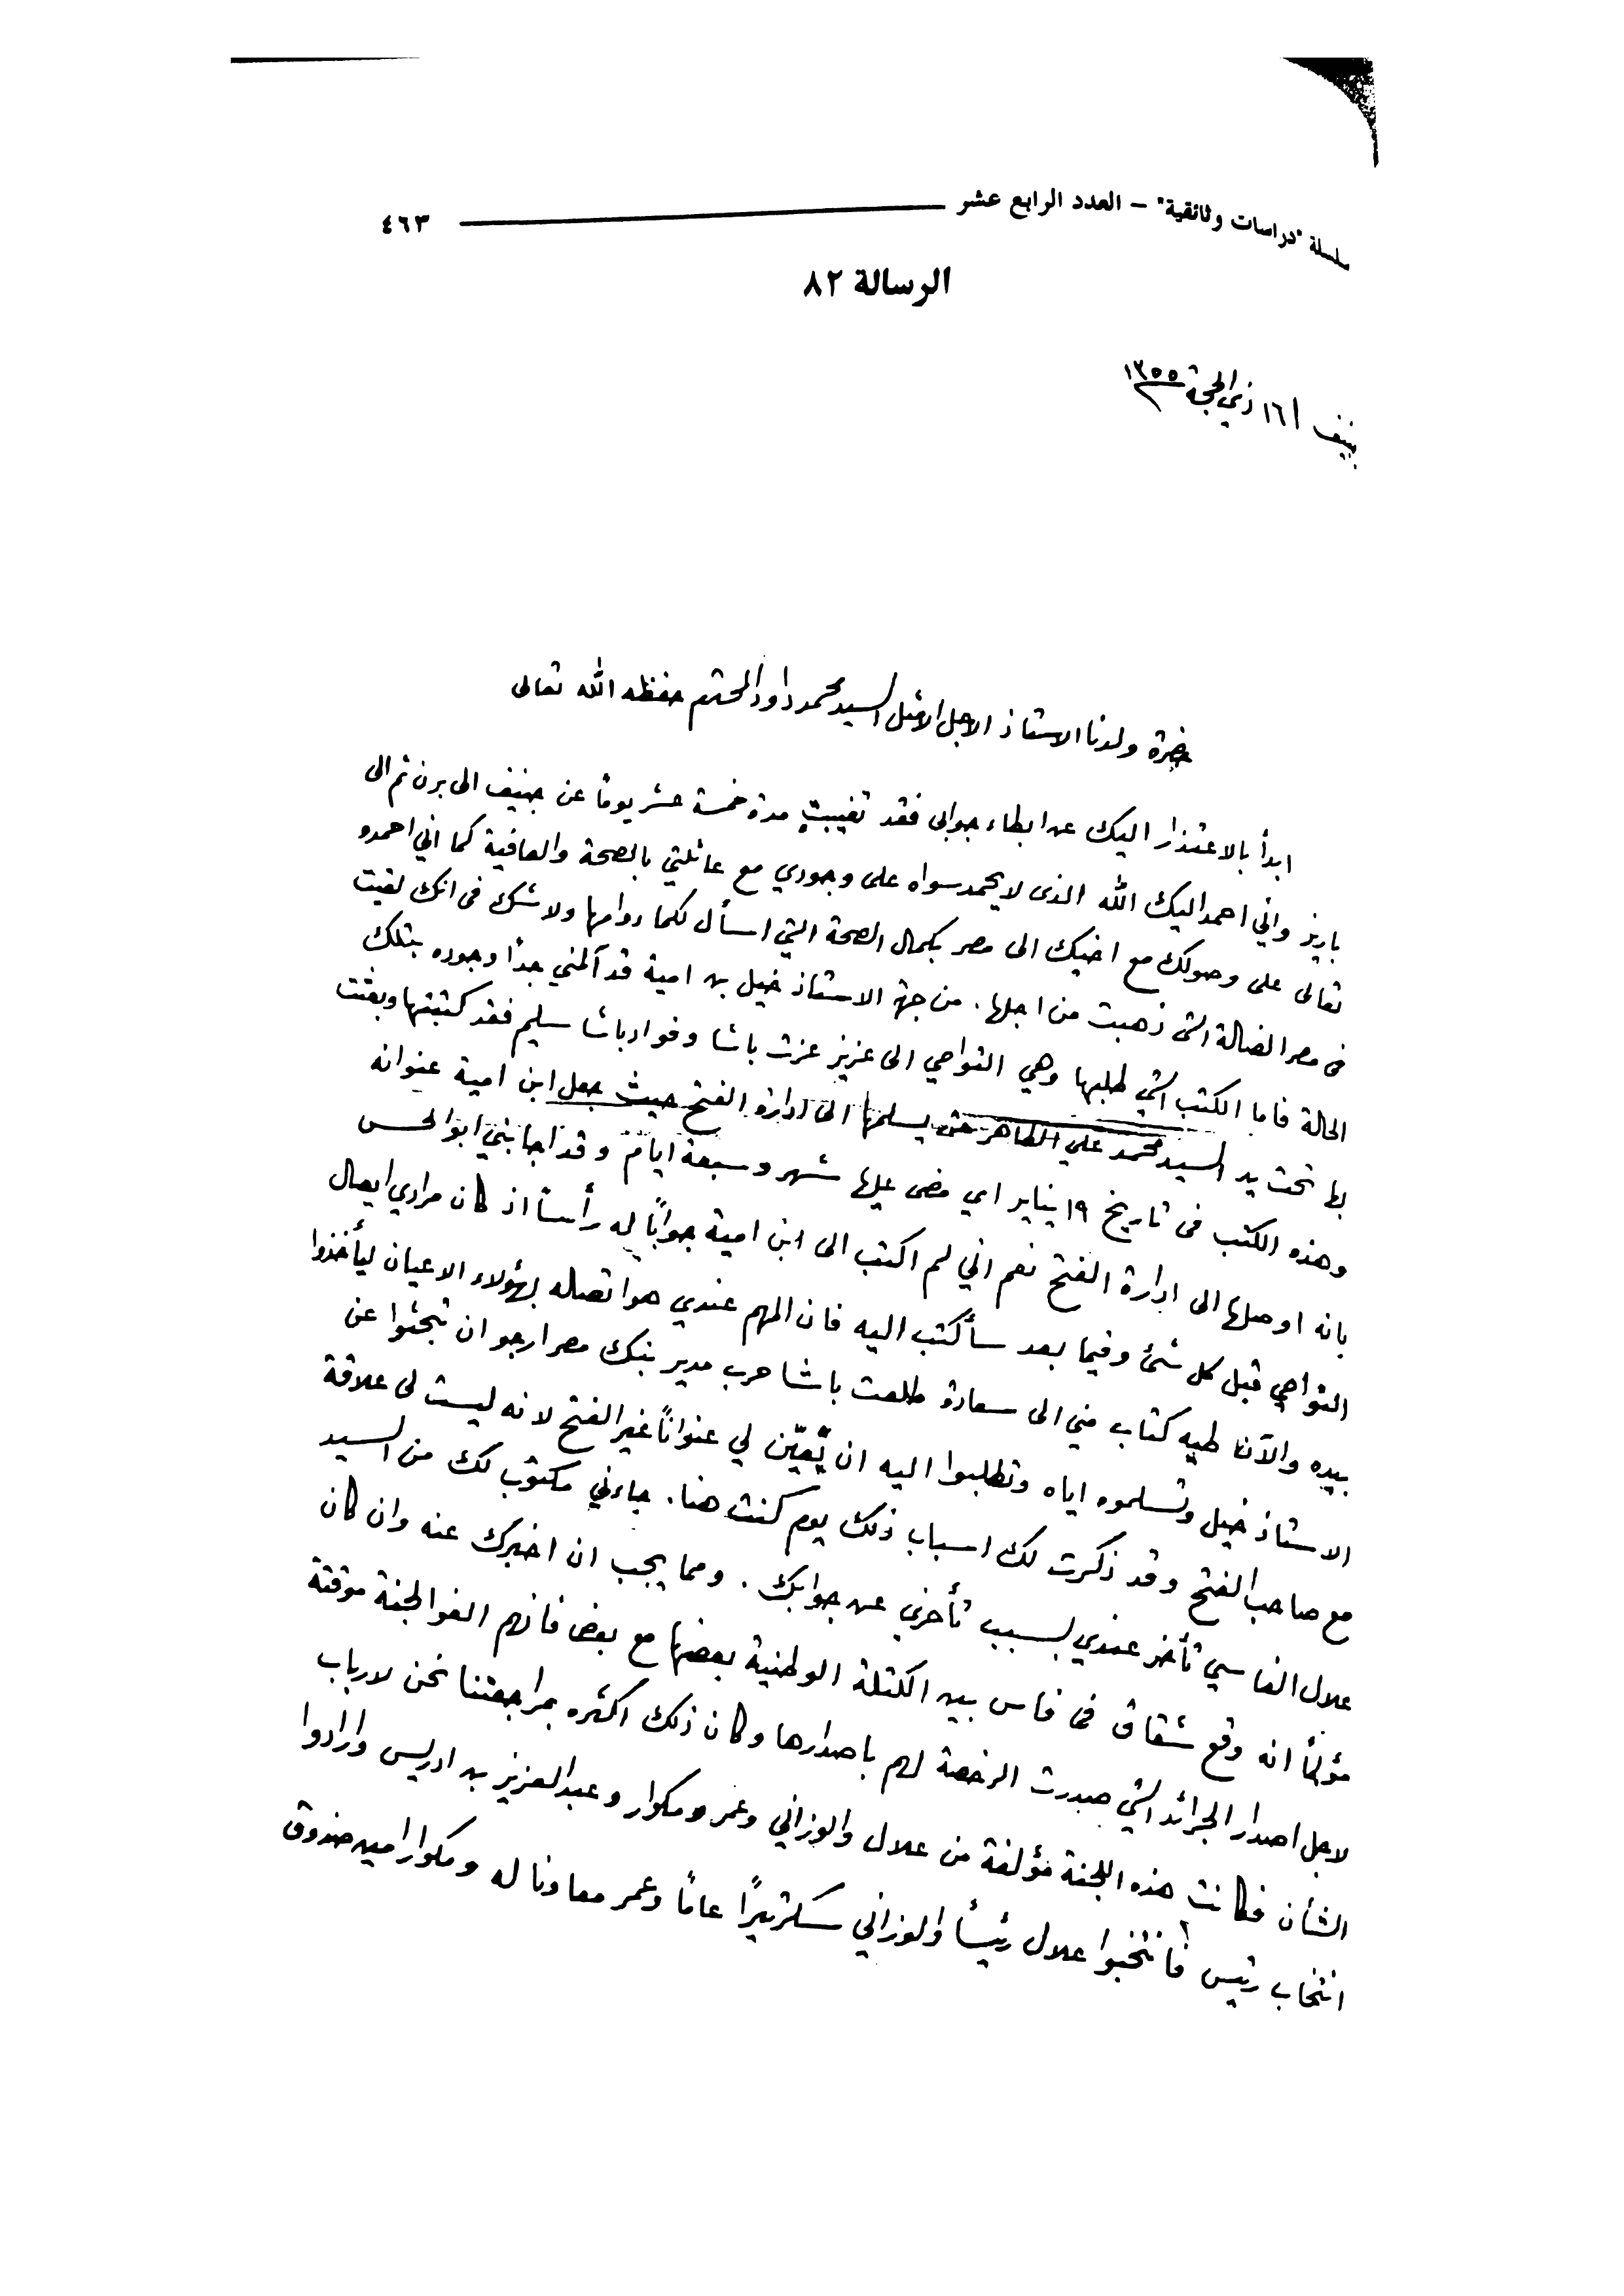 سلسلة "دراسات وثائقية" – العدد الرابع عشر ٤٦٣
الرسالة ٨٢
جنيف ١٦ ذي الحجة ١٣٥٥
حضرة ولدنا الاستاذ الاجل الامثل السيد محمد داود المحترم حفظه الله تعالى
ابدأ بالاعتذار اليك عن ابطاء جوابى فقد تغيبت مدة خمسة عشر يوماً عن جنيف الى برن ثم الى
باريز واني احمد اليك الله الذى لا يحمد سواه على وجودي مع عائلتي بالصحة والعافية كما اني احمده
تعالى على وصولك مع اخيك الى مصر بكمال الصحة التي اسأل لكما دوامها ولا شك فى انك لقيت
فى مصر الضالة التى ذهبت من اجلها. من جهة الاستاذ خيل بن امية قد آلمني جداً وجوده بتلك
الحالة فاما الكتب التي طلبها وهي التواصي الى عزيز عزت باشا وفواد باشا سليم فقد كتبتها وبعثت
بها تحت يد السيد محمد علي الطاهر حتى يسلمها الى ادارة الفتح حيث جعل ابن امية عنوانه
وهذه الكتب فى تاريخ ١٩ يناير اي مضى عليها شهر وسبعة ايام وقد اجابني ابو الحسن
بانه اوصلها الى ادارة الفتح نعم اني لم اكتب الى ابن امية جواباً له رأساً اذ كان مرادي ايصال
التواصي قبل كل شئ وفيما بعد سأكتب اليه فان المهم عندي هو اتصاله بهؤلاء الاعيان ليأخذوا
بيده والآن طيه كتاب مني الى سعادة طلعت باشا حرب مدير بنك مصر ارجو ان تبحثوا عن
الاستاذ خيل وتسلموه اياه وتطلبوا اليه ان يعيّن لي عنواناً غير الفتح لانه ليست لى علاقة
مع صاحب الفتح وقد ذكرت لك اسباب ذلك يوم كنت هنا. جاءني مكتوب لك من السيد
علال الفاسي تأخر عندي بسبب تأخري عن جوابك. ومما يجب ان اخبرك عنه وان كان
مؤلماً انه وقع شقاق فى فاس بين الكتلة الوطنية بعضها مع بعض فانهم الفوا لجنة موقتة
لاجل اصدار الجرائد التي صدرت الرخصة لهم باصدارها وكان ذلك اكثره بمراجعتنا نحن لارباب
الشأن فكانت هذه اللجنة مؤلفة من علال والوزاني وعمر ومكوار وعبد العزيز بن ادريس وارادوا
انتخاب رئيس فانتخبوا علال رئيساً والوزاني سكرتيراً عاماً وعمر معاونا له ومكوار امين صندوق